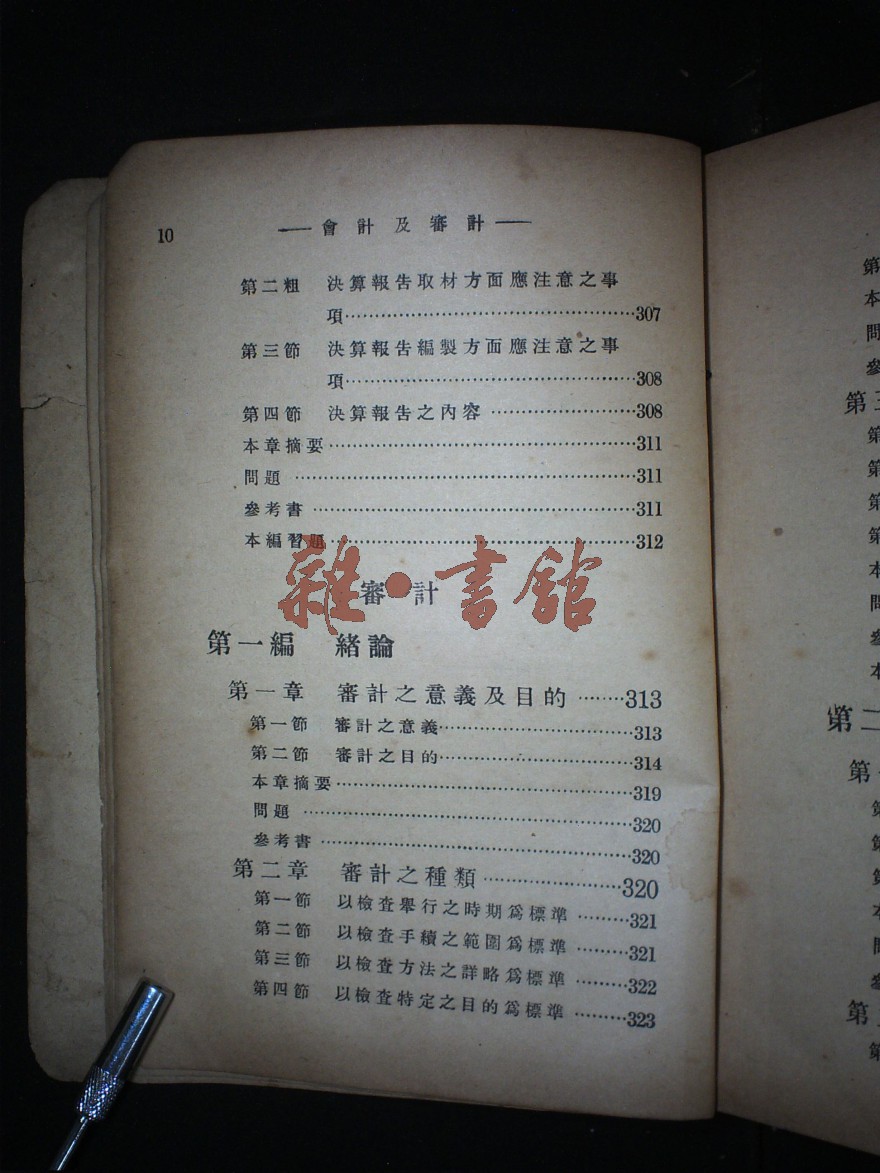 10
——會計及審計——
第二粗 決算報告取材方面應注意之事
項……………………………………307
第三節 決算報告編製方面應注意之事
項……………………………………308
第四節 決算報告之內容……………………308
本章摘要……………………………………311
問題……………………………………311
參考書……………………………………311
本編習題……………………………………312
雜·書館
審計
第一編 緒論
第一章 審計之意義及目的………313
第一節 審計之意義……………………313
第二節 審計之目的……………………314
本章摘要……………………………………319
問題……………………………………320
參考書……………………………………320
第二章 審計之種類……………………320
第一節 以檢查舉行之時期爲標準………321
第二節 以檢查手續之範圍爲標準………321
第三節 以檢查方法之詳略爲標準………322
第四節 以檢查特定之目的爲標準………323
第
本
問
參
第三
第
第
第
第
本
問
參
本
第二
第
第
第
第
本
問
參
第
第